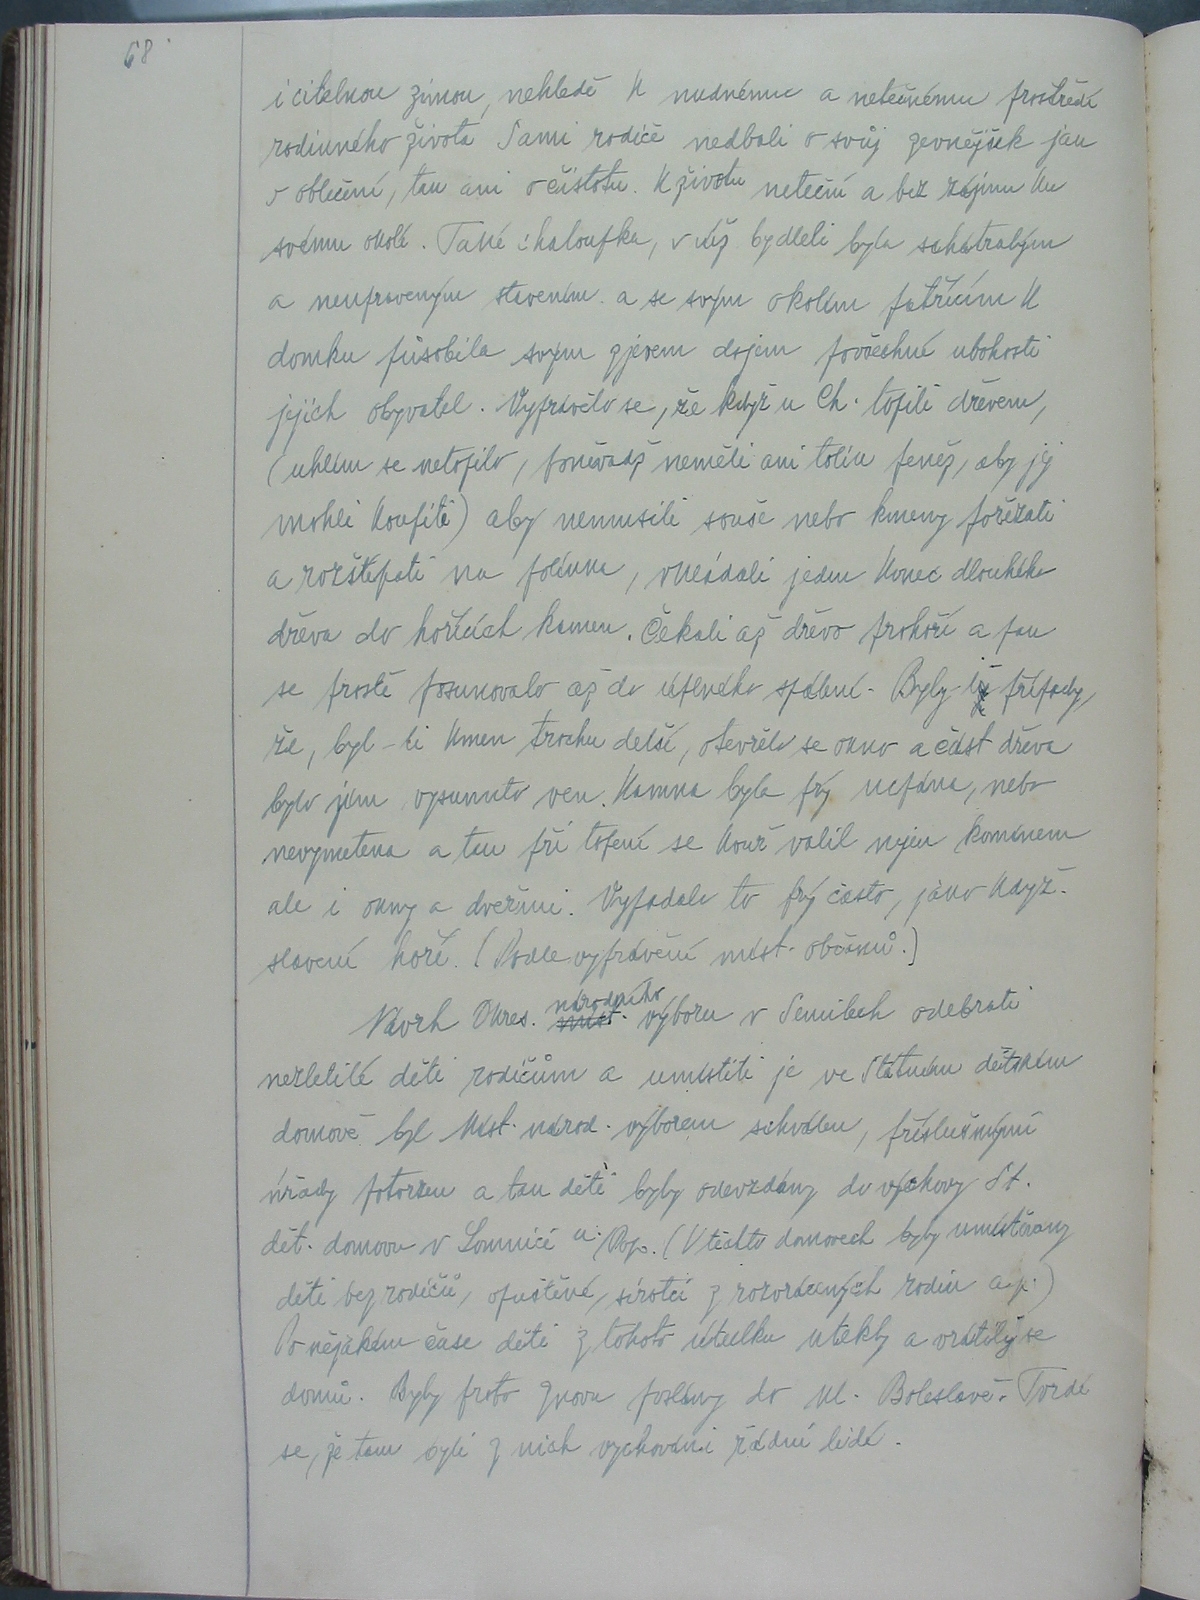 68
i citelnou zimou, nehledě k nudnému a netečnému prostředí
rodinného života. Sami rodiče nedbali o svůj zevnějšek jak
v oblečení, tak ani o čistotu. K životu neteční a bez zájmu ku
svému okolí. Také chaloupka, v níž bydleli byla schátralým
a neupraveným stavením a se svým okolím patřícím k
domku působila svým zjevem dojem povšechné ubohosti
jejich obyvatel. Vyprávělo se, že když u Ch. topili dřevem,
(uhlím se netopilo, poněvadž neměli ani tolik peněz, aby jej
mohli koupiti) aby nemusili souše nebo kmeny pořezati
a rozštípati na polínka, vkládali jeden konec dlouhého
dřeva do hořících kamen. Čekali až dřevo prohoří a pak
se prostě posunovalo až do úplného spálení. Byly případy,
že, byl-li kmen trochu delší, otevřelo se okno a část dřeva
bylo jím vysunuto ven. Kamna byla prý ucpána, nebo
nevymetena a tak při topení se kouř valil nejen komínem
ale i okny a dveřmi. Vypadalo to prý často, jako když
stavení hoří. (Podle vyprávění míst. občanů.)
Návrh Okres. národního výboru v Semilech odebrati
nezletilé děti rodičům a umístiti je ve Státním dětském
domově byl Míst. národ. výborem schválen, příslušnými
úřady potvrzen a tak děti byly odevzdány do výchovy St.
dět. domova v Lomnici n. Pop. (V těchto domovech byly umístěny
děti bez rodičů, opuštěné, sirotci z rozvrácených rodin a.p.)
Po nějakém čase děti z tohoto útulku utekly a vrátily se
domů. Byly proto znovu poslány do Ml. Boleslavě. Tvrdí
se, že tam byli z nich vychováni řádní lidé.